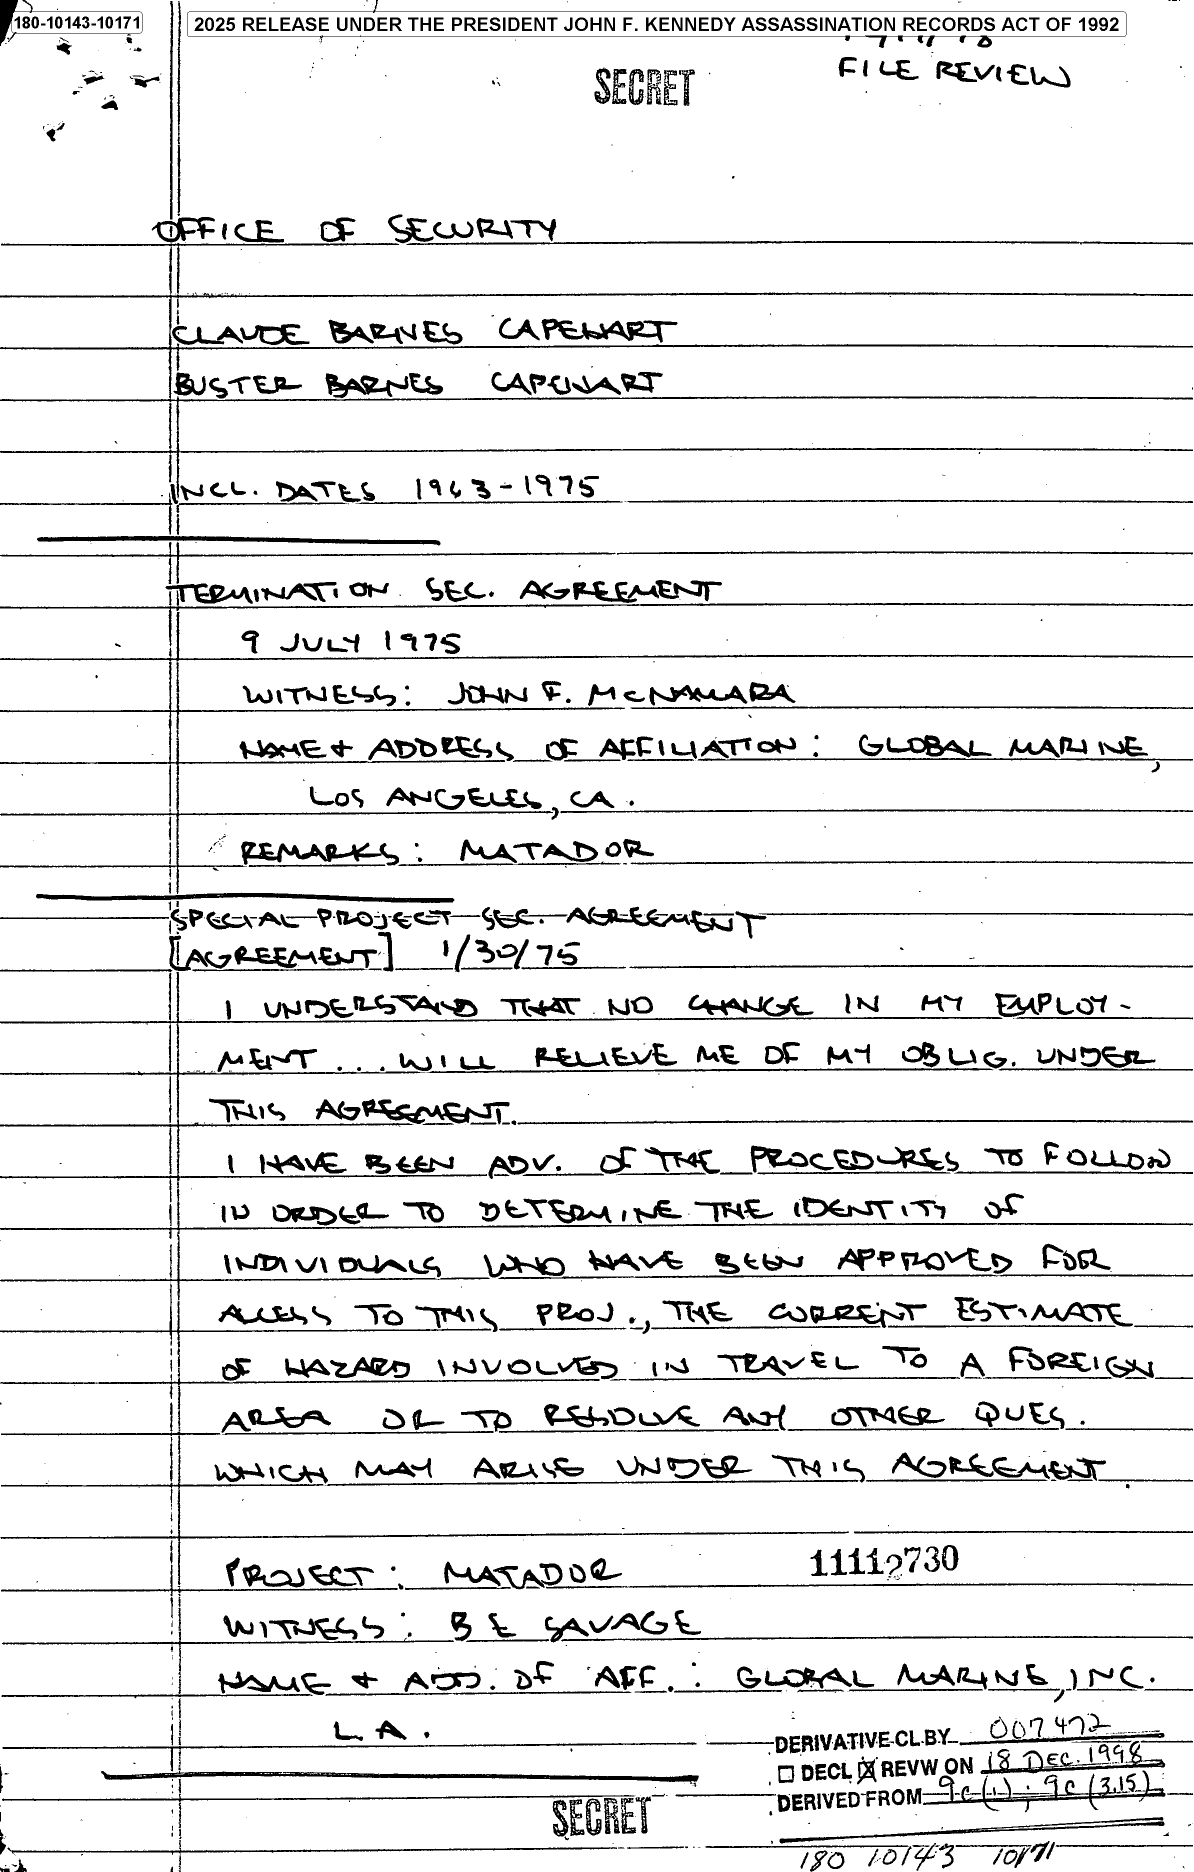 180-10143-10171
2025 RELEASE UNDER THE PRESIDENT JOHN F. KENNEDY ASSASSINATION RECORDS ACT OF 1992
SECRET
FILE REVIEW
OFFICE OF SECURITY
CLAUDE BARNES CAPEHART
BUSTER BARNES CAPEHART
INCL. DATES 1963-1975
TERMINATION SEC. AGREEMENT
9 JULY 1975
WITNESS: JOHN F. McNAMARA
NAME + ADDRESS OF AFFILIATION: GLOBAL MARINE,
LOS ANGELES, CA.
REMARKS: MATADOR
SPECIAL PROJECT SEC. AGREEMENT
[AGREEMENT] 1/30/75
I UNDERSTAND THAT NO CHANGE IN MY EMPLOY-
MENT ... WILL RELIEVE ME OF MY OBLIG. UNDER
THIS AGREEMENT.
I HAVE BEEN ADV. OF THE PROCEDURES TO FOLLOW
IN ORDER TO DETERMINE THE IDENTITY OF
INDIVIDUALS WHO HAVE BEEN APPROVED FOR
ACCESS TO THIS PROJ., THE CURRENT ESTIMATE
OF HAZARD INVOLVED IN TRAVEL TO A FOREIGN
AREA OR TO RESOLVE ANY OTHER QUES.
WHICH MAY ARISE UNDER THIS AGREEMENT.
PROJECT: MATADOR
11112730
WITNESS: B E SAVAGE
NAME + ADD. OF AFF.: GLOBAL MARINE, INC.
L.A.
DERIVATIVE CL BY 007472
☐ DECL ☒ REVW ON 18 DEC. 1998
DERIVED FROM 9c(.1); 9c(3.15)
SECRET
180 10143 10171